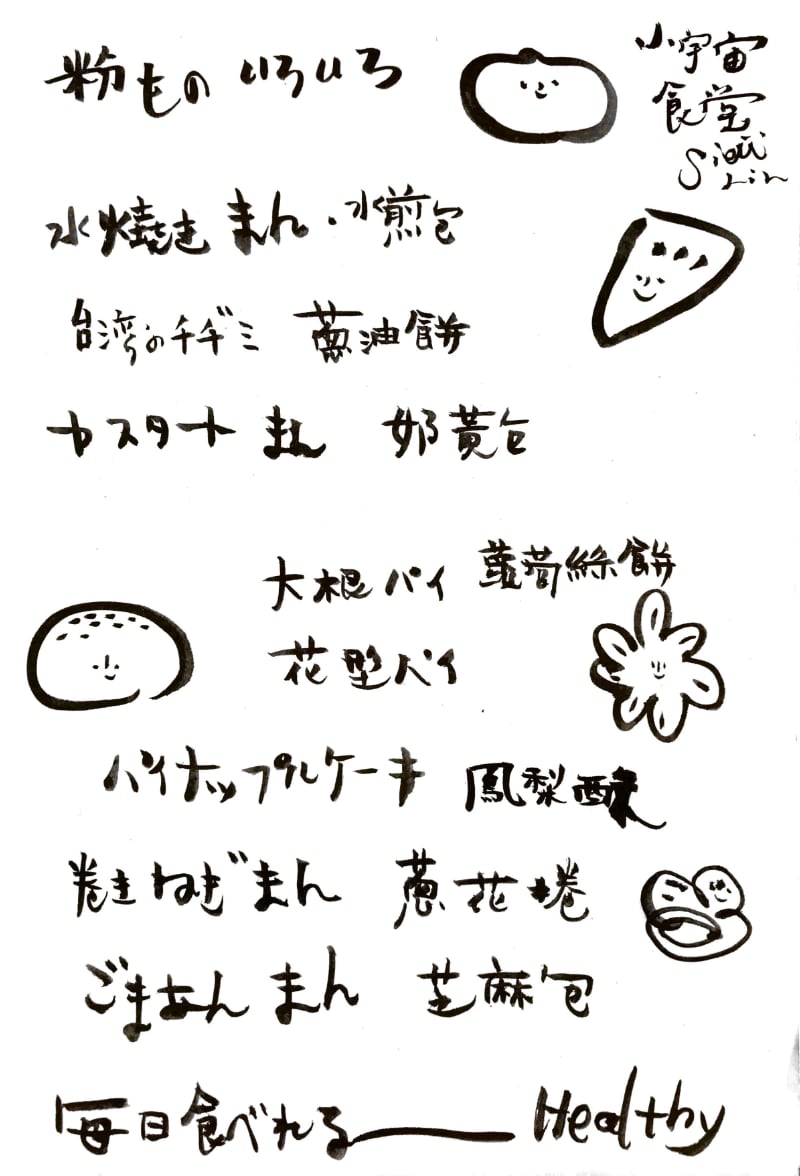 粉もの いろいろ
小宇宙
食堂
水燒き まん・水煎包
台湾のチヂミ 蔥油餅
カスタード まん 奶黃包
大根パイ 蘿蔔絲餅
花型パイ
パイナップルケーキ 鳳梨酥
巻きねぎまん 蔥花捲
ごまあん まん 芝麻包
毎日食べれる Healthy